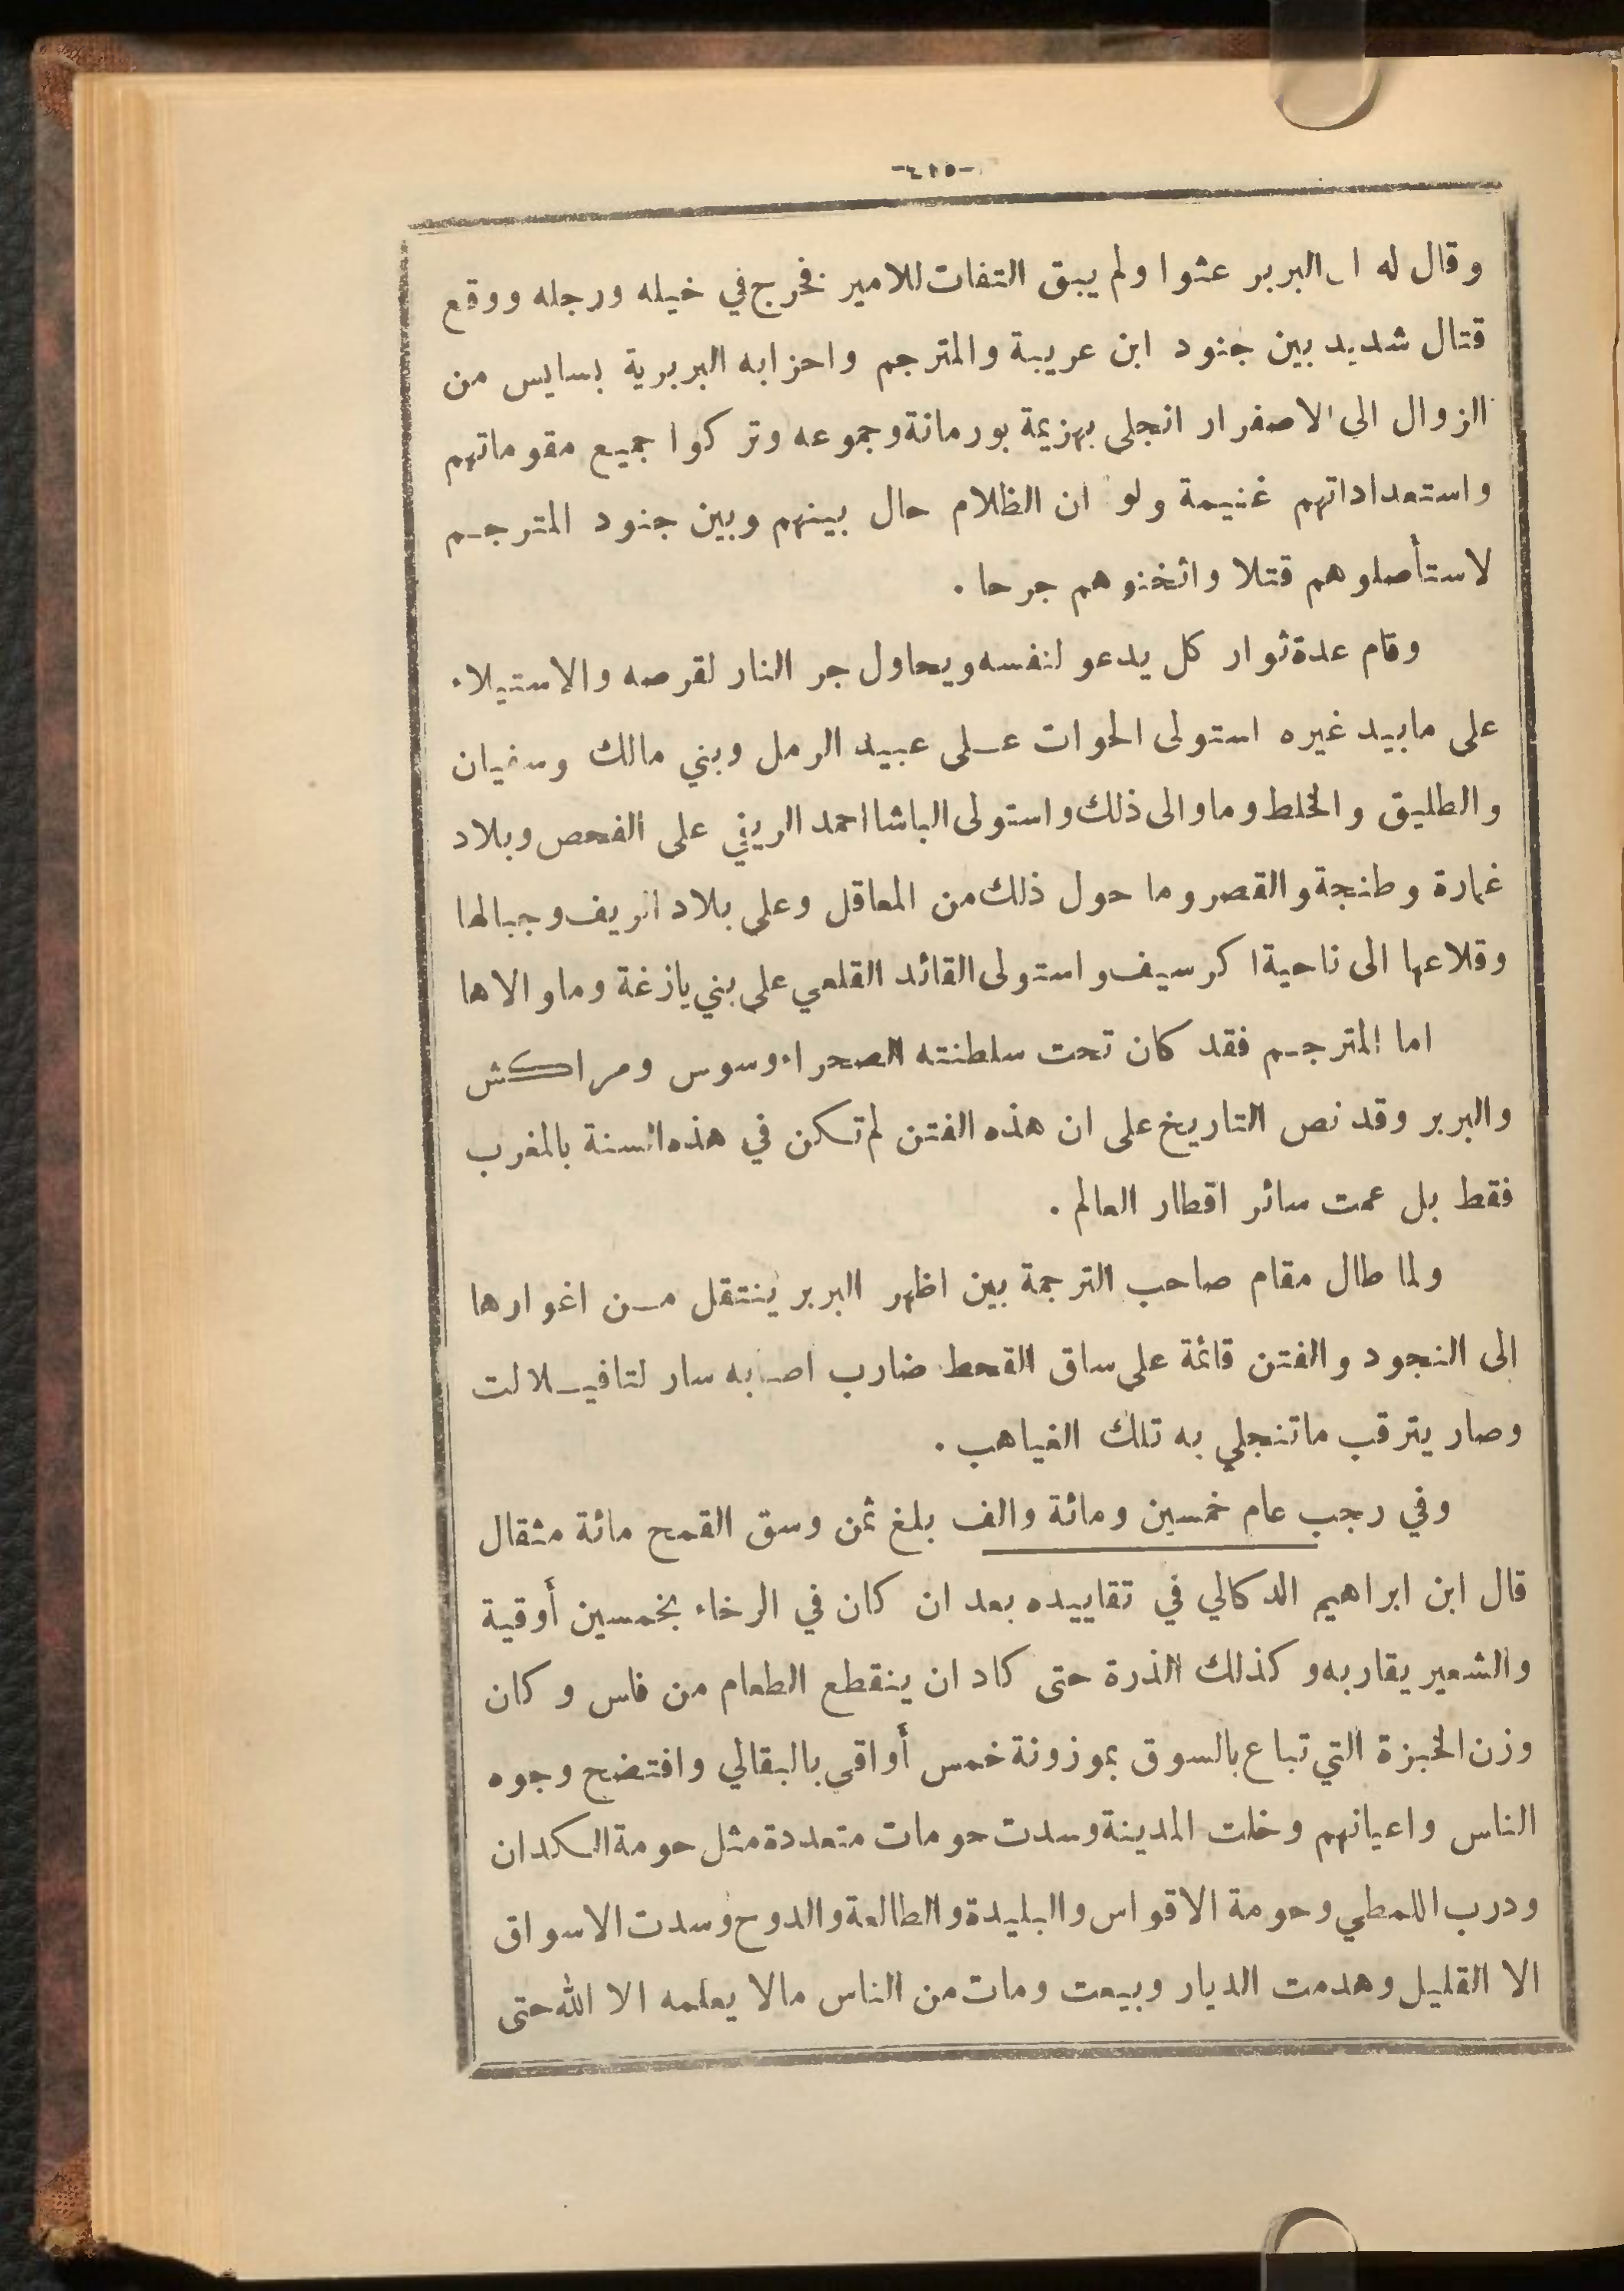 -٤١٥-
وقال له ان البربر عثوا ولم يبق التفات للامير فخرج في خيله ورجله ووقع
قتال شديد بين جنود ابن عريبة والمترجم واحزابه البربرية بسايس من
الزوال الى الاصفرار انجلى بهزيمة بورمانة وجموعه وتركوا جميع مقوماتهم
واستعداداتهم غنيمة ولو ان الظلام حال بينهم وبين جنود المترجم
لاستأصلوهم قتلا واثخنوهم جرحا .
وقام عدة ثوار كل يدعو لنفسه ويحاول جر النار لقرصه والاستيلاء
على مابيد غيره استولى الحوات على عبيد الرمل وبني مالك وسفيان
والطليق والخلط وماوالى ذلك واستولى الباشا احمد الريفي على الفحص وبلاد
غمارة وطنجة والقصر وما حول ذلك من المعاقل وعلى بلاد الريف وجبالها
وقلاعها الى ناحية اكرسيف واستولى القائد القلعي على بني يازغة وماوالاها
اما المترجم فقد كان تحت سلطنته الصحراء وسوس ومراكش
والبربر وقد نص التاريخ على ان هذه الفتن لم تكن في هذه السنة بالمغرب
فقط بل عمت سائر اقطار العالم .
ولما طال مقام صاحب الترجمة بين اظهر البربر ينتقل من اغوارها
الى النجود والفتن قائمة على ساق القحط ضارب اصابه سار لتافيلالت
وصار يترقب ماتنجلي به تلك الغياهب .
وفي رجب عام خمسين ومائة والف بلغ ثمن وسق القمح مائة مثقال
قال ابن ابراهيم الدكالي في تقاييده بعد ان كان في الرخاء بخمسين أوقية
والشعير يقاربه وكذلك الذرة حتى كاد ان ينقطع الطعام من فاس وكان
وزن الخبزة التي تباع بالسوق بموزونة خمس أواقى بالبقالي وافتضح وجوه
الناس واعيانهم وخلت المدينة وسدت حومات متعددة مثل حومة الكدان
ودرب اللمطي وحومة الاقواس والبليدة والطالعة والدوح وسدت الاسواق
الا القليل وهدمت الديار وبيعت ومات من الناس مالا يعلمه الا الله حتى